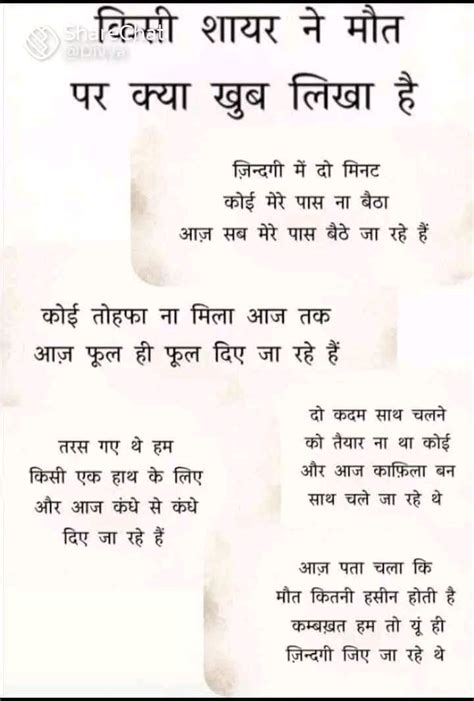 किसी शायर ने मौत
ShareChat
@Divya
पर क्या खुब लिखा है
ज़िन्दगी में दो मिनट
कोई मेरे पास ना बैठा
आज़ सब मेरे पास बैठे जा रहे हैं
कोई तोहफा ना मिला आज तक
आज़ फूल ही फूल दिए जा रहे हैं
तरस गए थे हम
किसी एक हाथ के लिए
और आज कंधे से कंधे
दिए जा रहे हैं
दो कदम साथ चलने
को तैयार ना था कोई
और आज काफ़िला बन
साथ चले जा रहे थे
आज़ पता चला कि
मौत कितनी हसीन होती है
कम्बख़त हम तो यूं ही
ज़िन्दगी जिए जा रहे थे